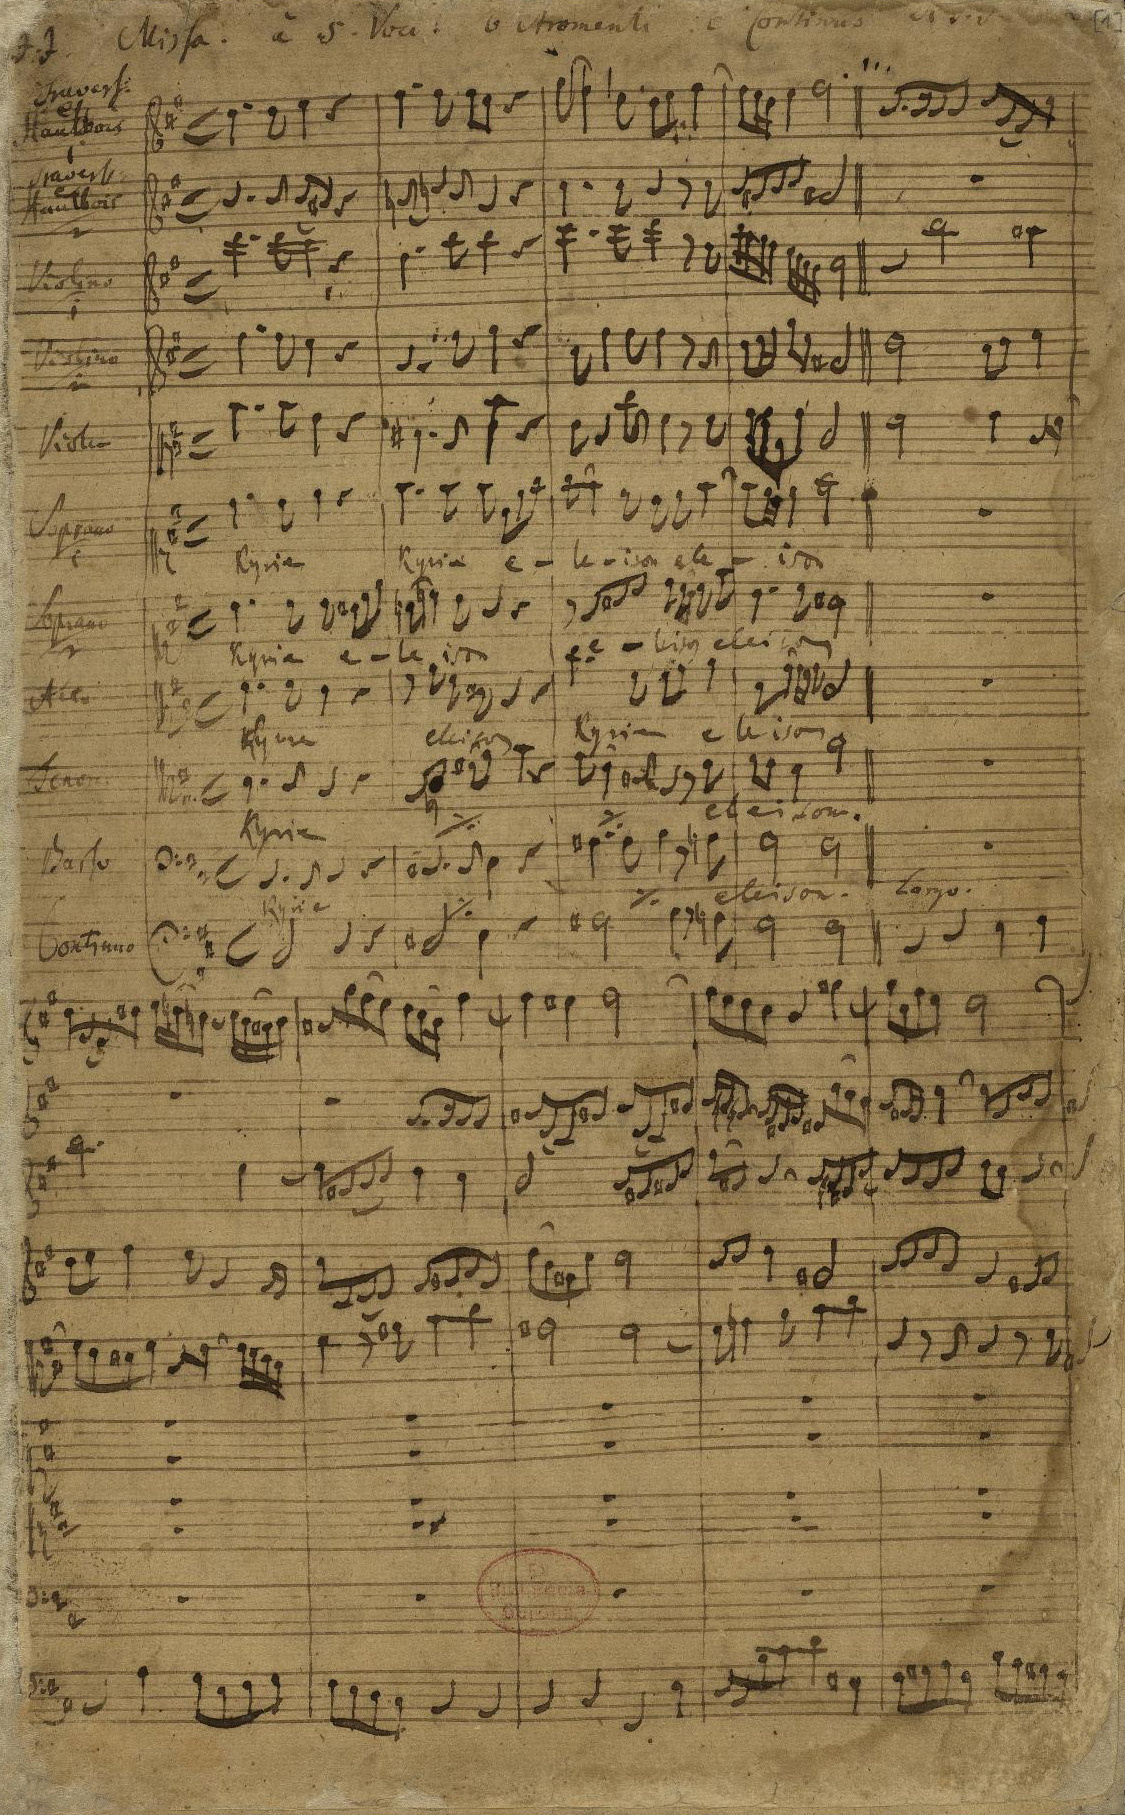 J.J. Missa. à 5. Voci. 6 Stromenti e Continuo
[1]
Travers:
et
Hautbois
1
Travers:
e
Hautbois
2
Violino
1
Violino
2
Viola
Soprano
1
Kyrie Kyrie e - le - ison ele - ison
Soprano
2
Kyrie e - le ison e - leison eleison
Alto
Kyrie eleison Kyrie eleison
Tenore
Kyrie ٪ ٪ eleison.
Basso
Kyrie ٪ ٪ eleison. Largo.
Continuo